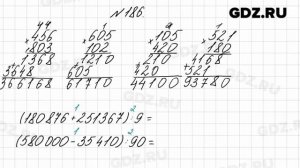 GDZ.RU
№186.
44 1
×456 ×605 ×105 ×521
803 102 420 180
1368 1210 210 4168
3648 605 420 521
366168 61710 44100 93780
1 2
(180876+251367):9=
1 2
(580000-35410):90=
GDZ.RU